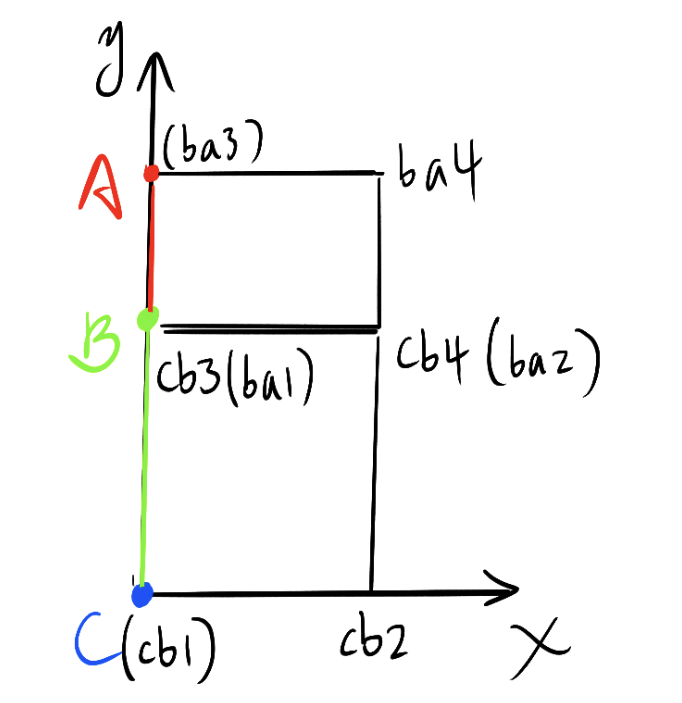 y
(ba3)
A
ba4
B
cb3(ba1)
cb4(ba2)
C(cb1)
cb2
x